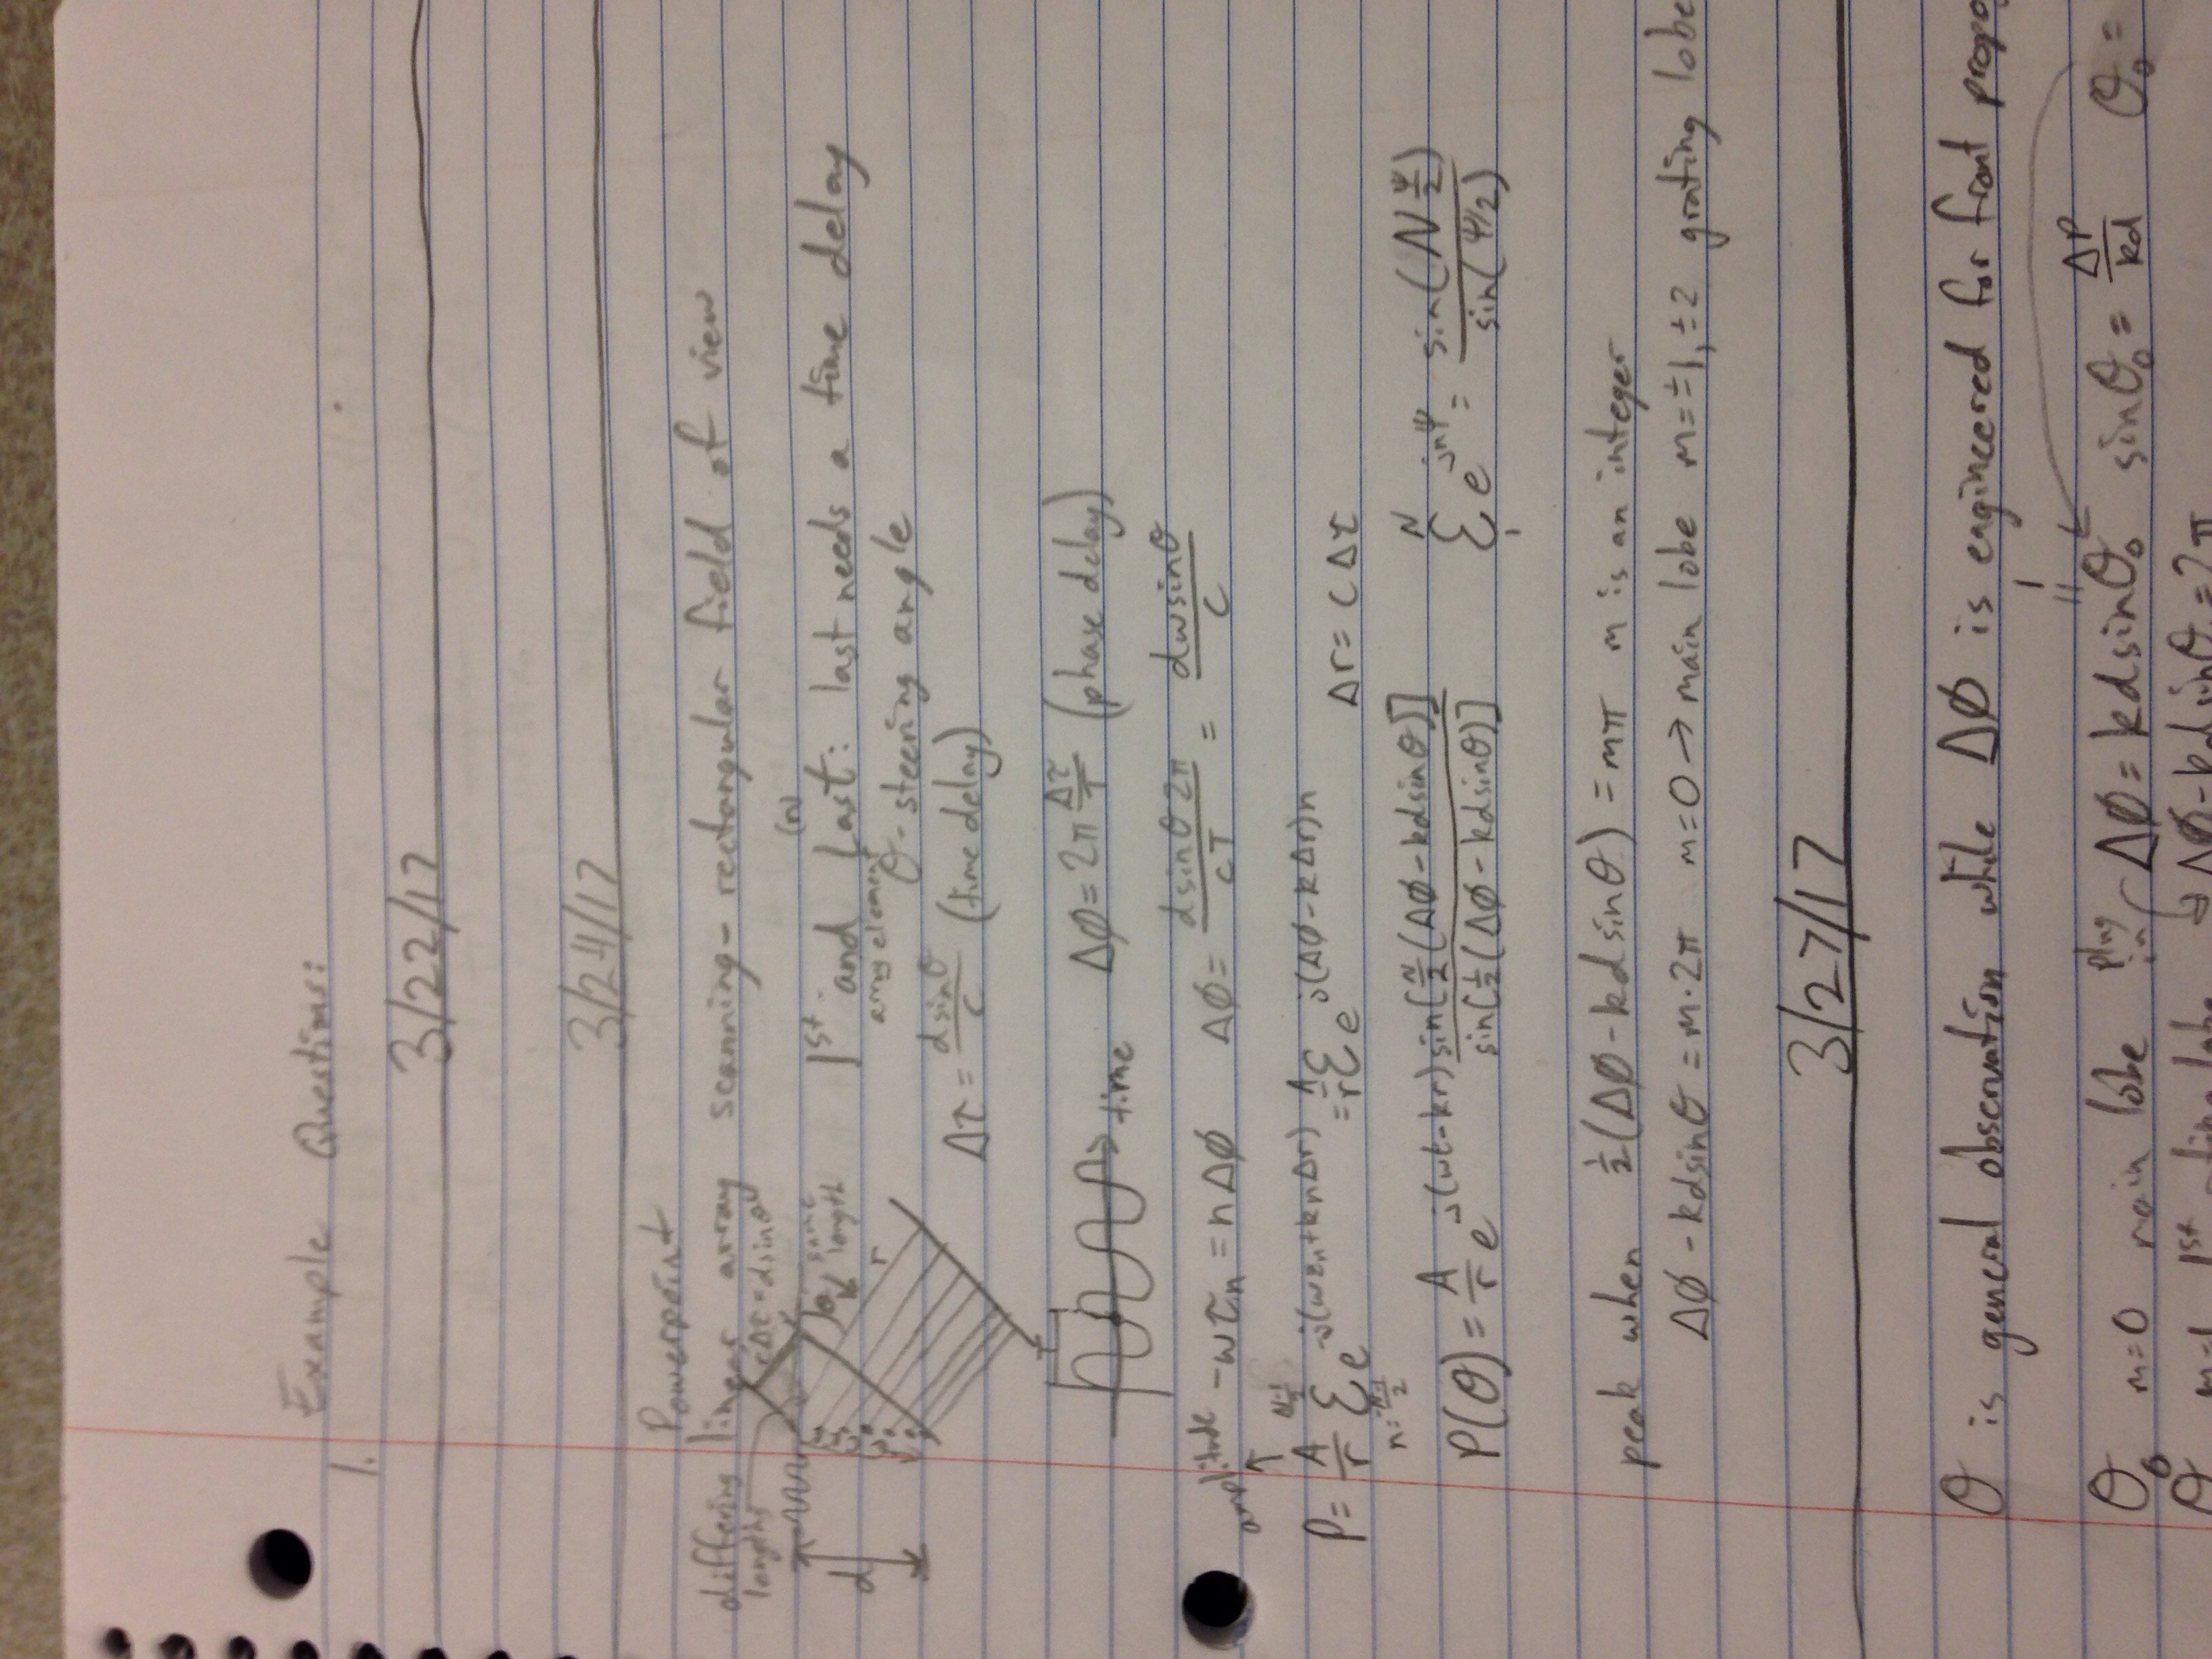 Example Questions:
1.
3/22/17
3/24/17
Powerpoint
linear array scanning - rectangular field of view
differing lengths
cΔτ = dsinθ
θ
same length
r
d
1st and Last: last needs a time delay
(n)
array element
θ - steering angle
Δτ = dsinθ/c (time delay)
T
time
Δφ = 2π Δτ/T (phase delay)
amplitude
-wτn = nΔφ Δφ = dsinθ2π/cT = dwsinθ/c
P = A/r Σ n=-(N-1)/2 to (N-1)/2 e^-j(wτn+knΔr) = A/r Σ e^j(Δφ-kΔr)n Δr = cΔτ
P(θ) = A/r e^j(wt-kr) sin[N/2(Δφ-kdsinθ)]/sin[1/2(Δφ-kdsinθ)] Σ 1 to N e^jnψ = sin(Nψ/2)/sin(ψ/2)
peak when 1/2(Δφ-kdsinθ) = mπ m is an integer
Δφ-kdsinθ = m·2π m=0 → main lobe m=±1,±2 grating lobe
3/27/17
θ is general observation while Δφ is engineered for front propo
1
=
θ₀ m=0 main lobe plug in Δφ = kdsinθ₀ sinθ₀ = ΔP/kd θ₀ =
θ m=1 1st lobe Δφ-kdsinθ = 2π